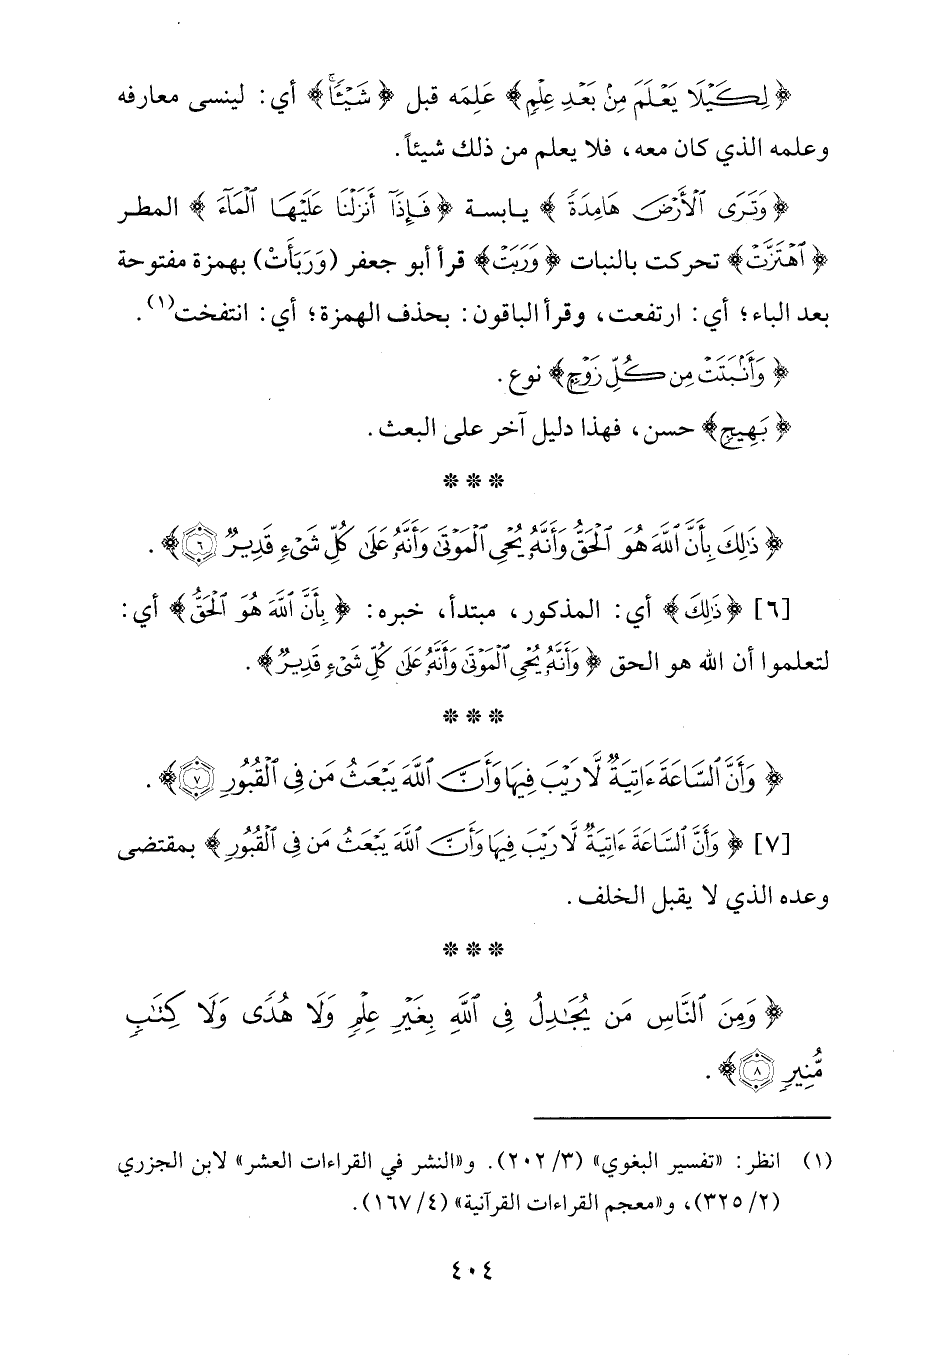 ﴿لِكَيْلَا يَعْلَمَ مِنْ بَعْدِ عِلْمٍ﴾ عَلِمَه قبل ﴿شَيْئًا﴾ أي: لينسى معارفه
وعلمه الذي كان معه، فلا يعلم من ذلك شيئاً.
﴿وَتَرَى ٱلْأَرْضَ هَامِدَةً﴾ يابسة ﴿فَإِذَآ أَنزَلْنَا عَلَيْهَا ٱلْمَآءَ﴾ المطر
﴿ٱهْتَزَّتْ﴾ تحركت بالنبات ﴿وَرَبَتْ﴾ قرأ أبو جعفر (وَرَبَأَتْ) بهمزة مفتوحة
بعد الباء؛ أي: ارتفعت، وقرأ الباقون: بحذف الهمزة؛ أي: انتفخت(١).
﴿وَأَنۢبَتَتْ مِن كُلِّ زَوْجٍ﴾ نوع.
﴿بَهِيجٍ﴾ حسن، فهذا دليل آخر على البعث.
* * *
﴿ذَٰلِكَ بِأَنَّ ٱللَّهَ هُوَ ٱلْحَقُّ وَأَنَّهُۥ يُحْىِ ٱلْمَوْتَىٰ وَأَنَّهُۥ عَلَىٰ كُلِّ شَىْءٍ قَدِيرٌ ٦﴾.
[٦] ﴿ذَٰلِكَ﴾ أي: المذكور، مبتدأ، خبره: ﴿بِأَنَّ ٱللَّهَ هُوَ ٱلْحَقُّ﴾ أي:
لتعلموا أن الله هو الحق ﴿وَأَنَّهُۥ يُحْىِ ٱلْمَوْتَىٰ وَأَنَّهُۥ عَلَىٰ كُلِّ شَىْءٍ قَدِيرٌ﴾.
* * *
﴿وَأَنَّ ٱلسَّاعَةَ ءَاتِيَةٌ لَّا رَيْبَ فِيهَا وَأَنَّ ٱللَّهَ يَبْعَثُ مَن فِى ٱلْقُبُورِ ٧﴾.
[٧] ﴿وَأَنَّ ٱلسَّاعَةَ ءَاتِيَةٌ لَّا رَيْبَ فِيهَا وَأَنَّ ٱللَّهَ يَبْعَثُ مَن فِى ٱلْقُبُورِ﴾ بمقتضى
وعده الذي لا يقبل الخلف.
* * *
﴿وَمِنَ ٱلنَّاسِ مَن يُجَٰدِلُ فِى ٱللَّهِ بِغَيْرِ عِلْمٍ وَلَا هُدًى وَلَا كِتَٰبٍ
مُّنِيرٍ ٨﴾.
(١) انظر: «تفسير البغوي» (٣/ ٢٠٢). و«النشر في القراءات العشر» لابن الجزري
(٢/ ٣٢٥)، و«معجم القراءات القرآنية» (٤/ ١٦٧).
٤٠٤